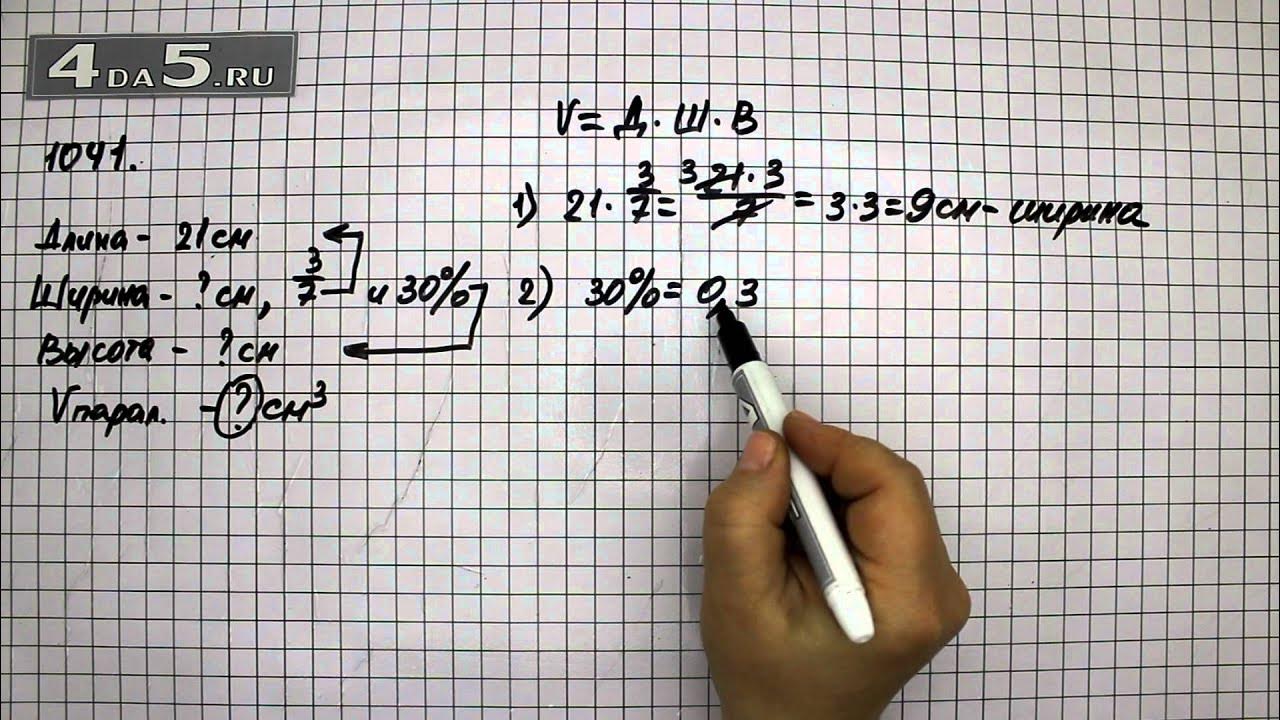 4DA5.RU
1041.
Длина - 21 см
Ширина - ? см, 3/7 и 30%
Высота - ? см
Vпарал. - ? см³
V = Д · Ш · В
1) 21 · 3/7 = 3 21 · 3/7 = 3 · 3 = 9 см - ширина
2) 30% = 0,3